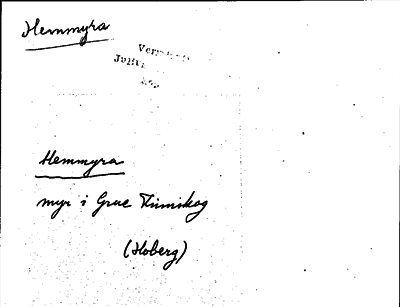 Hemmyra
Hemmyra
myr i Grue Finnskog
(Hoberg)